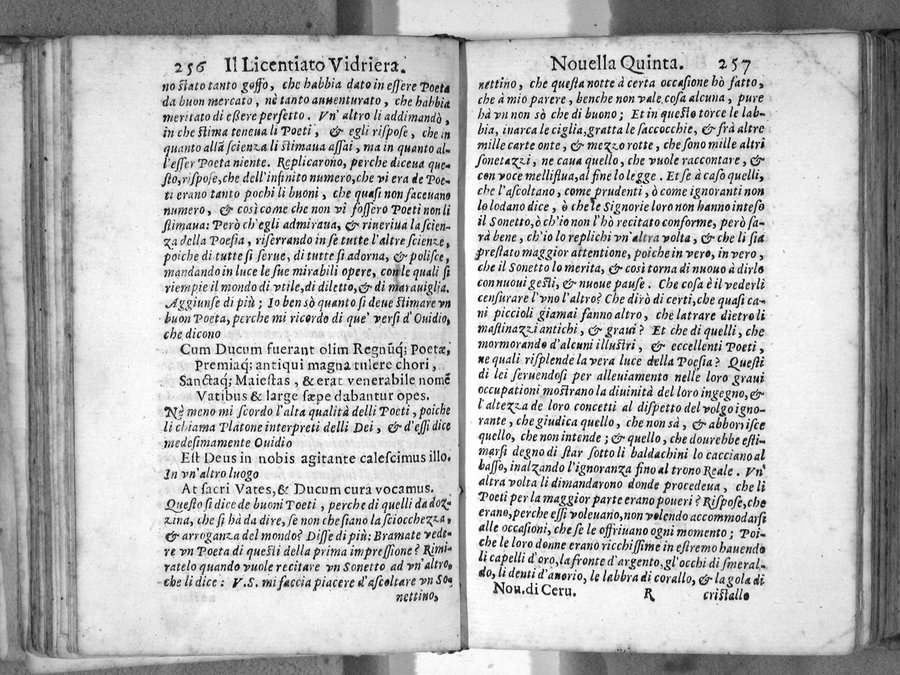 256 Il Licentiato Vidriera.
no stato tanto goffo, che habbia dato in essere Poeta
da buon mercato, nè tanto auuenturato, che habbia
meritato di essere perfetto. Vn' altro li addimandò,
in che stima teneua li Poeti, & egli rispose, che in
quanto alla scienza li stimaua assai, ma in quanto al-
l'esser Poeta niente. Replicarono, perche diceua que-
sto, rispose, che dell'infinito numero, che vi era de Poe-
ti erano tanto pochi li buoni, che quasi non faceuano
numero, & così come che non vi fossero Poeti non li
stimaua: Però ch'egli admiraua, & riueriua la scien-
za della Poesia, riserrando in se tutte l'altre scienze,
poiche di tutte si serue, di tutte si adorna, & polisce,
mandando in luce le sue mirabili opere, con le quali si
riempie il mondo di vtile, di diletto, & di marauiglia.
Aggiunse di più; Io ben sò quanto si deue stimare vn
buon Poeta, perche mi ricordo di que' versi d'Ouidio,
che dicono
Cum Ducum fuerant olim Regnũq; Poetæ,
Premiaq; antiqui magna tulere chori,
Sanctaq; Maiestas, & erat venerabile nomẽ
Vatibus & large sæpe dabantur opes.
Nè meno mi scordo l'alta qualità delli Poeti, poiche
li chiama Platone interpreti delli Dei, & d'essi dice
medesimamente Ouidio
Est Deus in nobis agitante calescimus illo.
In vn'altro luogo
At sacri Vates, & Ducum cura vocamus.
Questo si dice de buoni Poeti, perche di quelli da doz-
zina, che si hà da dire, se non che siano la sciocchezza,
& arroganza del mondo? Disse di più: Bramate vede-
re vn Poeta di questi della prima impressione? Rimi-
ratelo quando vuole recitare vn Sonetto ad vn'altro,
che li dice: V.S. mi faccia piacere d'ascoltare vn So-
nettino,
Nouella Quinta. 257
nettino, che questa notte à certa occasione hò fatto,
che à mio parere, benche non vale cosa alcuna, pure
hà vn non sò che di buono; Et in questo torce le lab-
bia, inarca le ciglia, gratta le saccocchie, & frà altre
mille carte onte, & mezzo rotte, che sono mille altri
sonetazzi, ne caua quello, che vuole raccontare, &
con voce melliflua, al fine lo legge. Et se à caso quelli,
che l'ascoltano, come prudenti, ò come ignoranti non
lo lodano dice, ò che le Signorie loro non hanno inteso
il Sonetto, ò ch'io non l'hò recitato conforme, però sa-
rà bene, ch'io lo replichi vn'altra volta, & che li sia
prestato maggior attentione, poiche in vero, in vero,
che il Sonetto lo merita, & così torna di nuouo à dirlo
con nuoui gesti, & nuoue pause. Che cosa è il vederli
censurare l'vno l'altro? Che dirò di certi, che quasi ca-
ni piccioli giamai fanno altro, che latrare dietro li
mastinazzi antichi, & graui? Et che di quelli, che
mormorando d'alcuni illustri, & eccellenti Poeti,
ne quali risplende la vera luce della Poesia? Questi
di lei seruendosi per alleuiamento nelle loro graui
occupationi mostrano la diuinità del loro ingegno, &
l'altezza de loro concetti al dispetto del volgo igno-
rante, che giudica quello, che non sà, & abborisce
quello, che non intende; & quello, che dourebbe esti-
marsi degno di star sotto li baldachini lo cacciano al
basso, inalzando l'ignoranza fino al trono Reale. Vn'
altra volta li dimandarono donde procedeua, che li
Poeti per la maggior parte erano poueri? Rispose, che
erano, perche essi voleuano, non volendo accommodarsi
alle occasioni, che se le offriuano ogni momento; Poi-
che le loro donne erano ricchissime in estremo hauendo
li capelli d'oro, la fronte d'argento, gl'occhi di smeral-
do, li denti d'auorio, le labbra di corallo, & la gola di
Nou. di Ceru. R cristallo